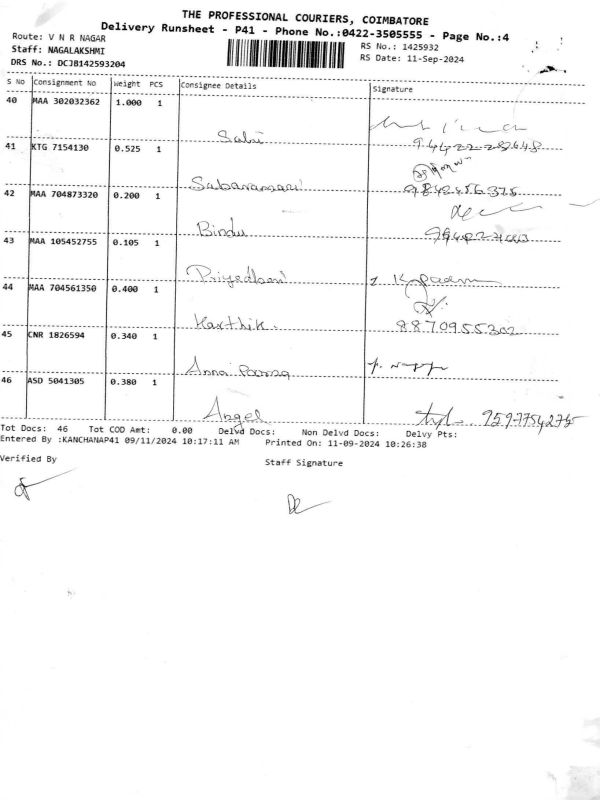 THE PROFESSIONAL COURIERS, COIMBATORE
Delivery Runsheet - P41 - Phone No.:0422-3505555 - Page No.:4
Route: V N R NAGAR
RS No.: 1425932
Staff: NAGALAKSHMI
RS Date: 11-Sep-2024
DRS No.: DCJB142593204
S No Consignment No Weight PCS Consignee Details Signature
40 MAA 302032362 1.000 1
Sabi
41 KTG 7154130 0.525 1
Sabarameari
9842456375
42 MAA 704873320 0.200 1
Bindu
43 MAA 105452755 0.105 1
44 MAA 704561350 0.400 1
Karthik.
8870955302
45 CNR 1826594 0.340 1
Anna Poorna
46 ASD 5041305 0.380 1
Angel
9597754275
Tot Docs: 46 Tot COD Amt: 0.00 Delvd Docs: Non Delvd Docs: Delvy Pts:
Entered By :KANCHANAP41 09/11/2024 10:17:11 AM Printed On: 11-09-2024 10:26:38
Verified By
Staff Signature